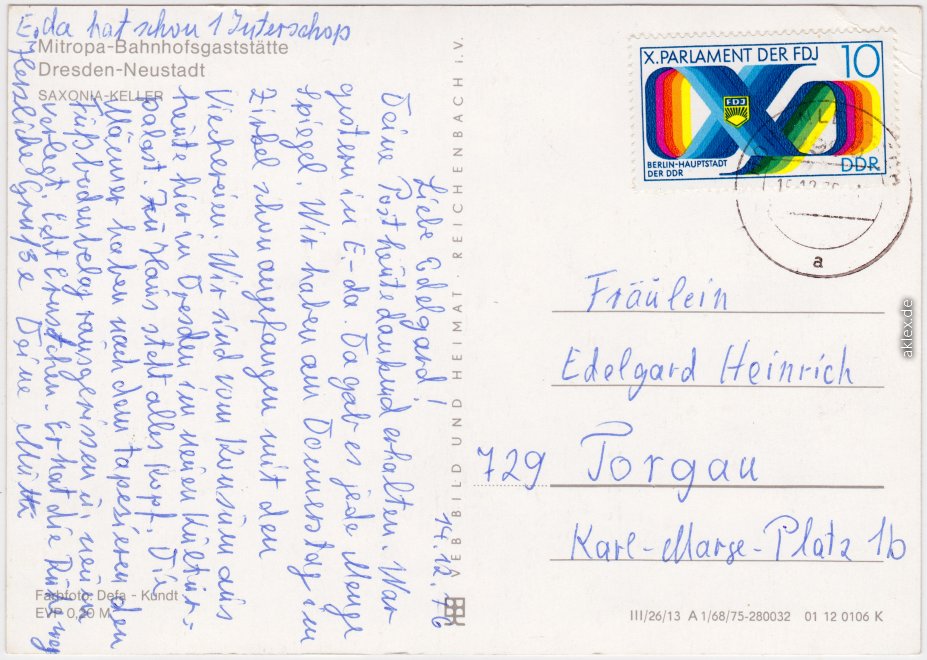 E.da hat schon 1 Interschop
Mitropa-Bahnhofsgaststätte
Dresden-Neustadt
SAXONIA-KELLER
14.12.76
Liebe Edelgard!
Deine Post heute dankend erhalten. War
gestern in E.-da. Da gab es jede Menge
Spiegel. Wir haben am Donnerstag im
Zirkel schon angefangen mit den
Viechereien. Wir sind vom Konsum aus
heute hier in Dresden im neuen Kultur-
palast. Zu Haus steht alles Kopf. Die
Männer haben nach dem tapezieren den
Fußbodenbelag rausgerissen u. neuen
verlegt. Echt Ernstchen. Er hat die Ruhe weg
Herzliche Grüße Deine Mutti
Farbfoto: Defa - Kundt
EVP 0,20 M
VEB BILD UND HEIMAT · REICHENBACH i.V.
X. PARLAMENT DER FDJ 10
FDJ
BERLIN-HAUPTSTADT
DER DDR
DDR
a
Fräulein
Edelgard Heinrich
729 Torgau
Karl-Marxe-Platz 1b
III/26/13 A 1/68/75-280032 01 12 0106 K
aklex.de